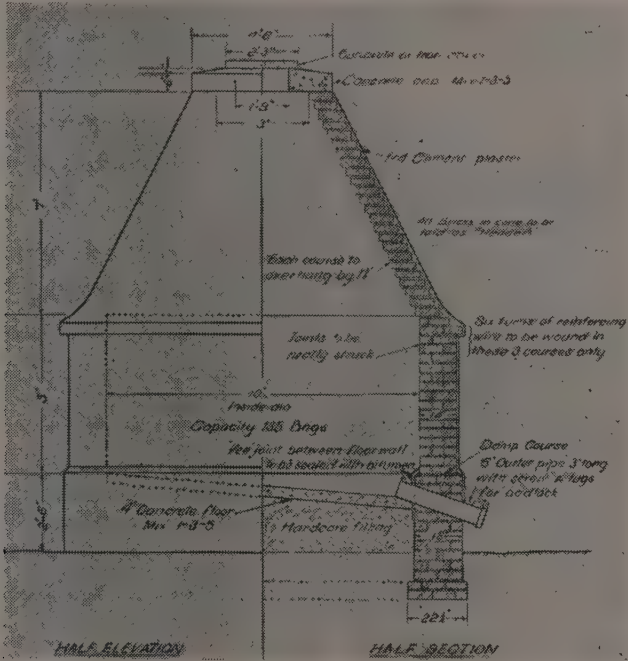 4'6"
2'3"
Concrete or iron cover
Concrete cap Mix 1-3-5
1'-9"
3'
Cement plaster
7'
All bricks in cone to be
laid as "Headers"
Each course to
overhang by 1¼"
Six turns of reinforcing
wire to be wound in
these 3 courses only
Joints to be
neatly struck
5'
10'
Inside dia
Capacity 135 bags
joint between floor wall
to be sealed with bitumen
Damp Course
6" Outlet pipe 3' long
with screw & lugs
for padlock
4" Concrete floor
Mix 1-3-5
Hardcore filling
2'-6"
18"
22½"
HALF ELEVATION
HALF SECTION